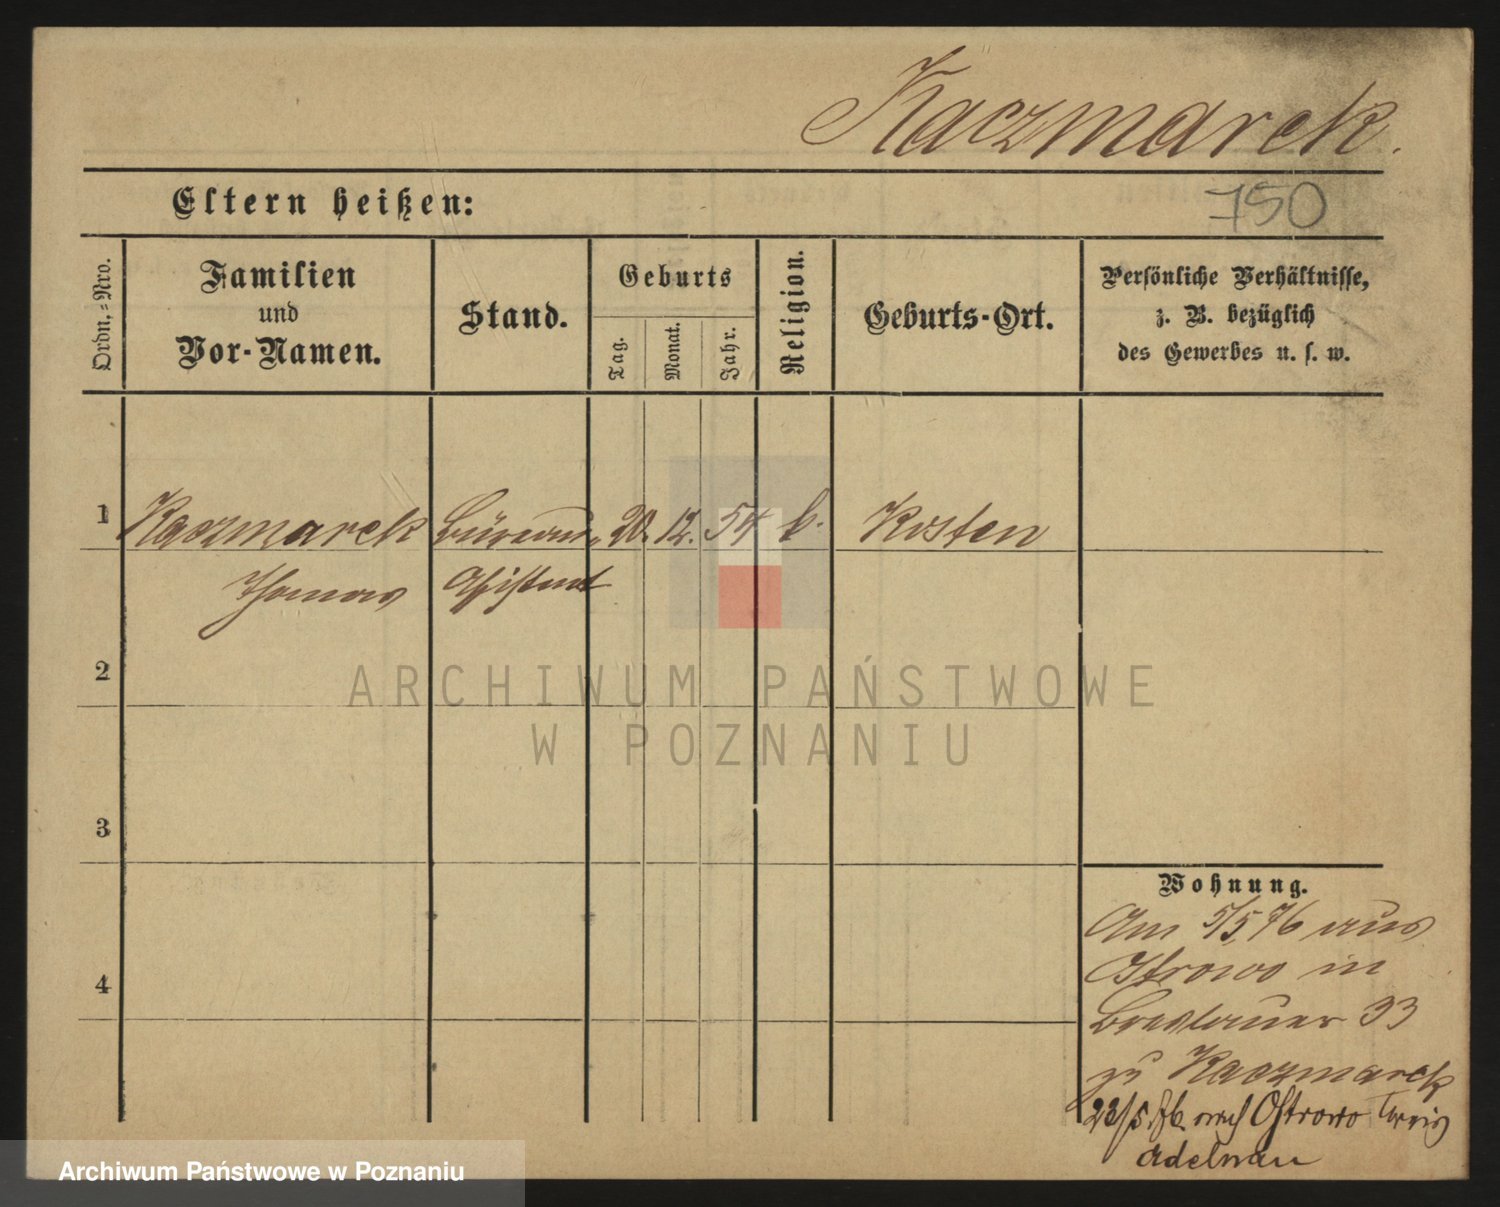 Kaczmarek.
750
Eltern heißen:
Ordn.-Nro.
Familien
und
Vor-Namen.
Stand.
Geburts
Tag.
Monat.
Jahr.
Religion.
Geburts-Ort.
Persönliche Verhältnisse,
z. B. bezüglich
des Gewerbes u. s. w.
1 Kaczmarek Büreau- 20. 12. 54 k. Kosten
Thomas Assistent
2
ARCHIWUM PAŃSTWOWE
W POZNANIU
3
4
Wohnung.
Am 5/5 76 aus
Ostrowo in
Breslauer 33
zu Kaczmarek
23/5 76. nach Ostrowo Kreis
Adelnau
Archiwum Państwowe w Poznaniu